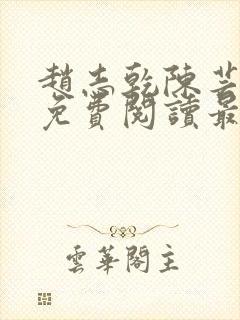 趙志乾陳芸
免費閱讀最
雲華閣主